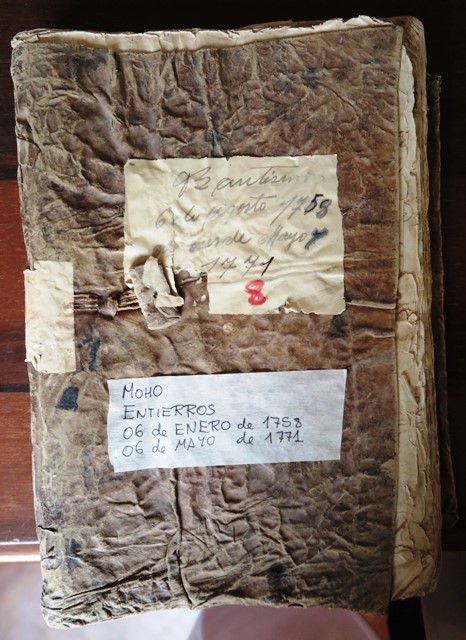 Bautismo
6 de agosto 1758
de Mayo
1771
8
MOHO
ENTIERROS
06 de ENERO de 1758
06 de MAYO de 1771